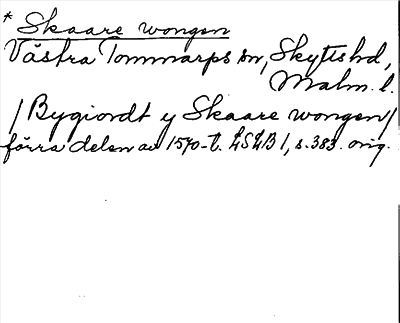 * Skaare wongen
Västra Tommarps sn, Skytts hd,
Malm. l.
/Bygiordt y Skaare wongen/
förra delen av 1570-t. LSLB 1, s. 383. orig.